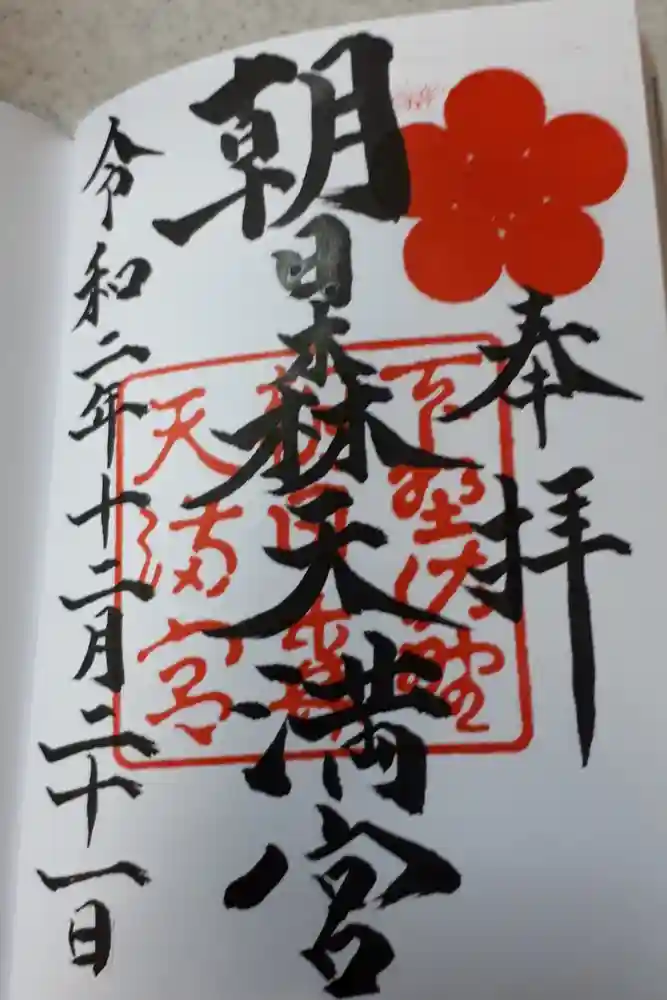 奉拝
朝日森天満宮
令和二年十二月二十一日
下野佐野
天満宮